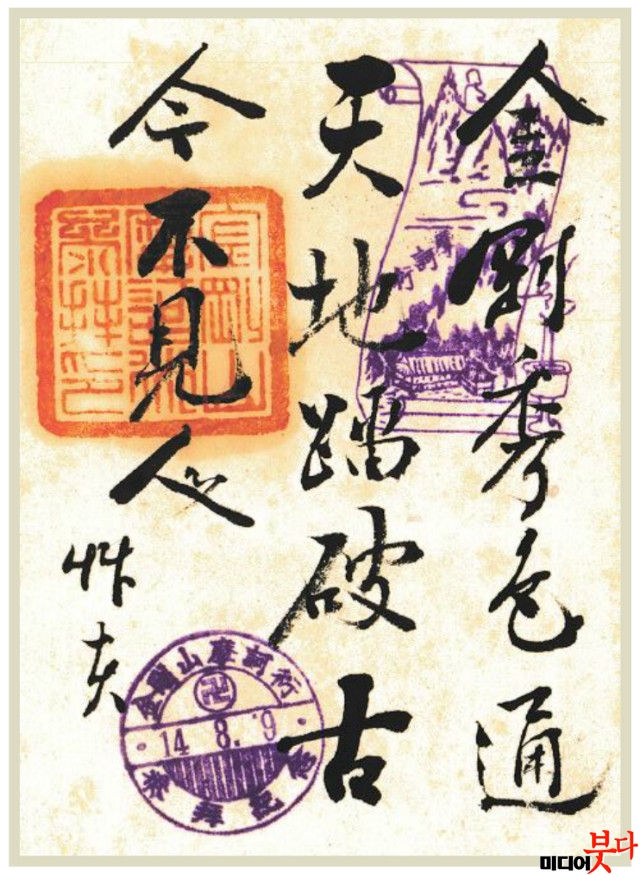 金剛秀色通
天地踏破古
今不見人
金剛山摩訶衍
14 8. 9
参拝記念
미디어붓다